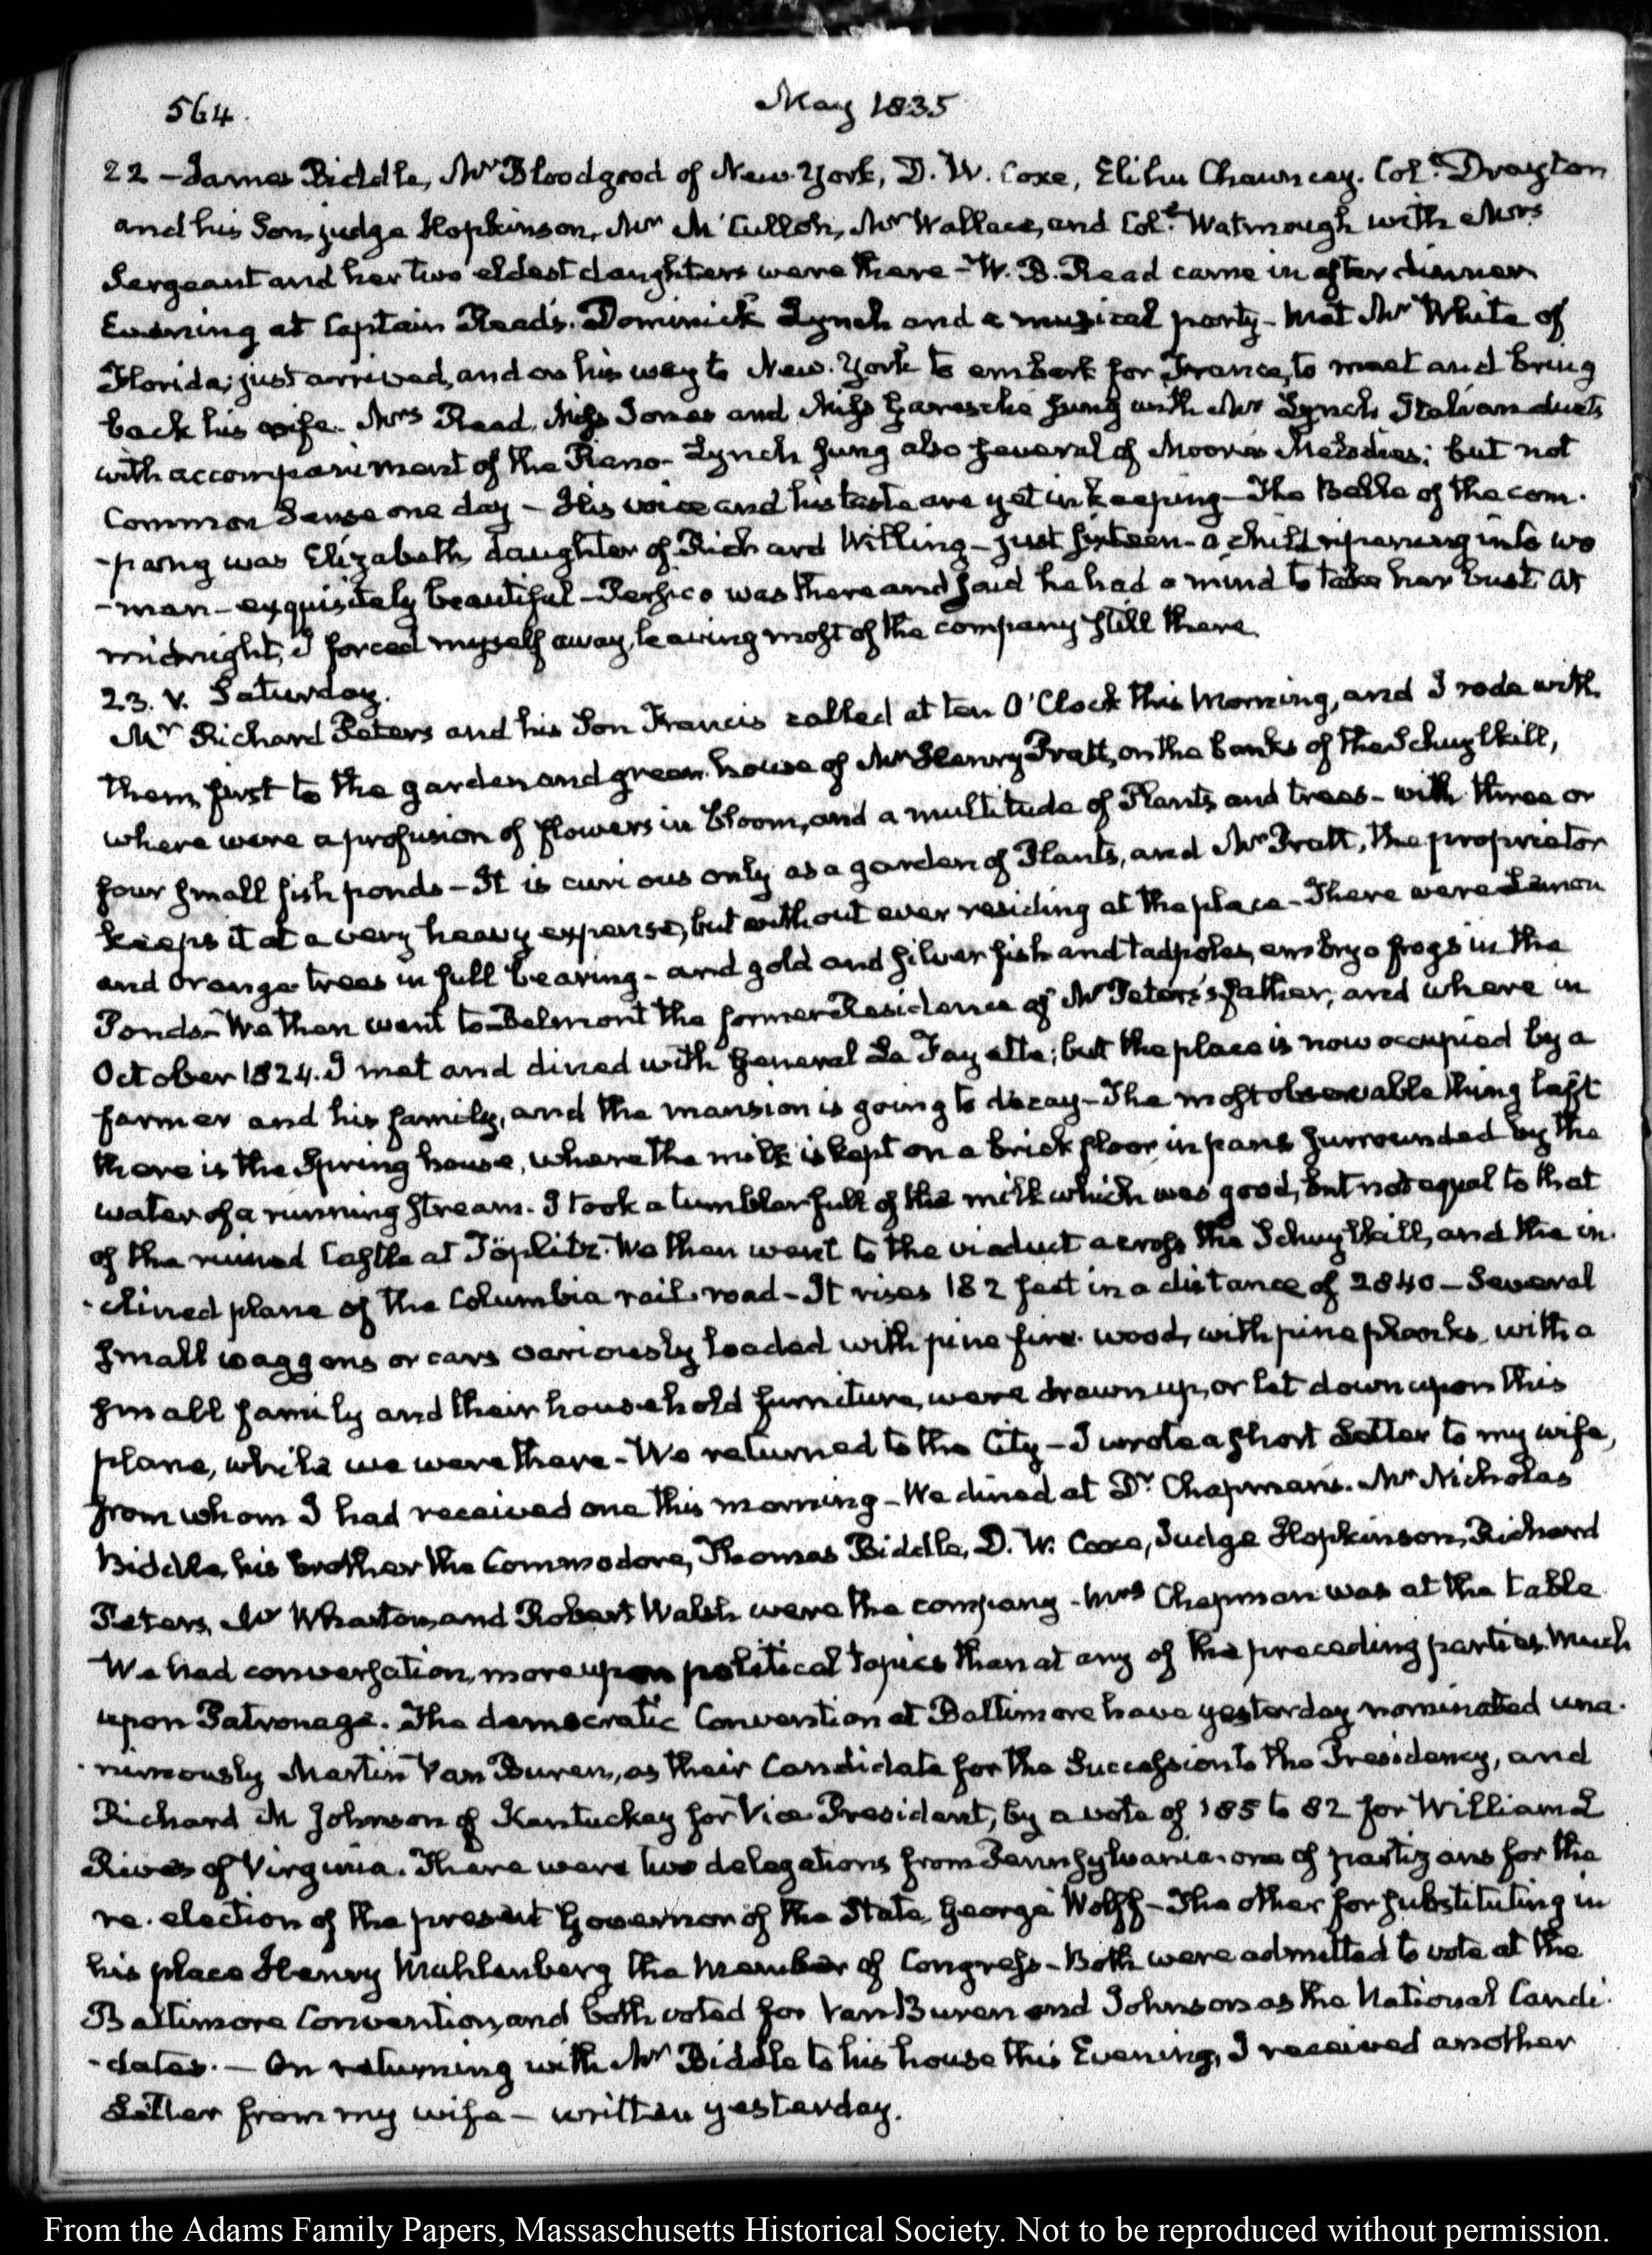 564.
May 1835
22 – James Biddle, Mr Bloodgood of New-York, D. W. Coxe, Elihu Chauncey. Coll. Drayton
and his Son, judge Hopkinson, Mr McCulloh, Mr Wallace, and Coll. Watmough with Mrs
Sergeant and her two eldest daughters were there – W. B. Read came in after dinner
Evening at Captain Read's. Dominick Lynch and a musical party – Met Mr White of
Florida; just arrived, and on his way to New-York to embark for France, to meet and bring
back his wife. Mrs Read, Miss Jones and Miss Garesche sung with Mr Lynch Italian duets
with accompaniment of the Piano – Lynch sung also several of Moore's Melodies; but not
Common Sense one day – His voice and his taste are yet in keeping – The Belle of the com-
-pany was Elizabeth, daughter of Richard Willing – just sixteen – a child ripening into wo
-man – exquisitely beautiful – Persico was there and said he had a mind to take her bust At
midnight, I forced myself away, leaving most of the company still there.
23. V. Saturday.
Mr Richard Peters and his Son Francis called at ten O'Clock this Morning, and I rode with
them, first to the garden and green-house of Mr Henry Pratt, on the banks of the Schuylkill,
where were a profusion of flowers in bloom, and a multitude of Plants and trees – with three or
four small fish ponds – It is curious only as a garden of Plants, and Mr Pratt, the proprietor
keeps it at a very heavy expense, but without ever residing at the place – There were Lemon
and Orange trees in full bearing – and gold and silver fish and tadpoles, embryo frogs in the
Ponds – We then went to Belmont the former Residence of Mr Peters's father, and where in
October 1824. I met and dined with General La Fayette; but the place is now occupied by a
farmer and his family, and the mansion is going to decay – The most observable thing left
there is the Spring house, where the milk is kept on a brick floor, in pans surrounded by the
water of a running stream. I took a tumbler full of the milk which was good, but not equal to that
of the ruined Castle at Töplitz. We then went to the viaduct across the Schuylkill, and the in-
-clined plane of the Columbia rail-road – It rises 182 feet in a distance of 2840 – Several
small waggons or cars variously loaded with pine fire-wood, with pine planks, with a
small family and their household furniture, were drawn up, or let down upon this
plane, while we were there – We returned to the City – I wrote a short Letter to my wife,
from whom I had received one this morning – We dined at Dr Chapman's. Mr Nicholas
Biddle, his brother the Commodore, Thomas Biddle, D. W. Coxe, Judge Hopkinson, Richard
Peters, Mr Wharton, and Robert Walsh were the company – Mrs Chapman was at the table
We had conversation, more upon political topics than at any of the preceding parties. Much
upon Patronage. The democratic Convention at Baltimore have yesterday nominated una-
-nimously Martin Van Buren, as their Candidate for the Succession to the Presidency, and
Richard M Johnson of Kentuckey for Vice-President, by a vote of 185 to 82 for William C
Rives of Virginia. There were two delegations from Pennsylvania. one of partizans for the
re-election of the present Governor of the State, George Wolff – The other for substituting in
his place Henry Muhlenberg the Member of Congress – Both were admitted to vote at the
Baltimore Convention, and both voted for Van Buren and Johnson as the National Candi-
-dates. – On returning with Mr Biddle to his house this Evening, I received another
Letter from my wife – written yesterday.
From the Adams Family Papers, Massachusetts Historical Society. Not to be reproduced without permission.